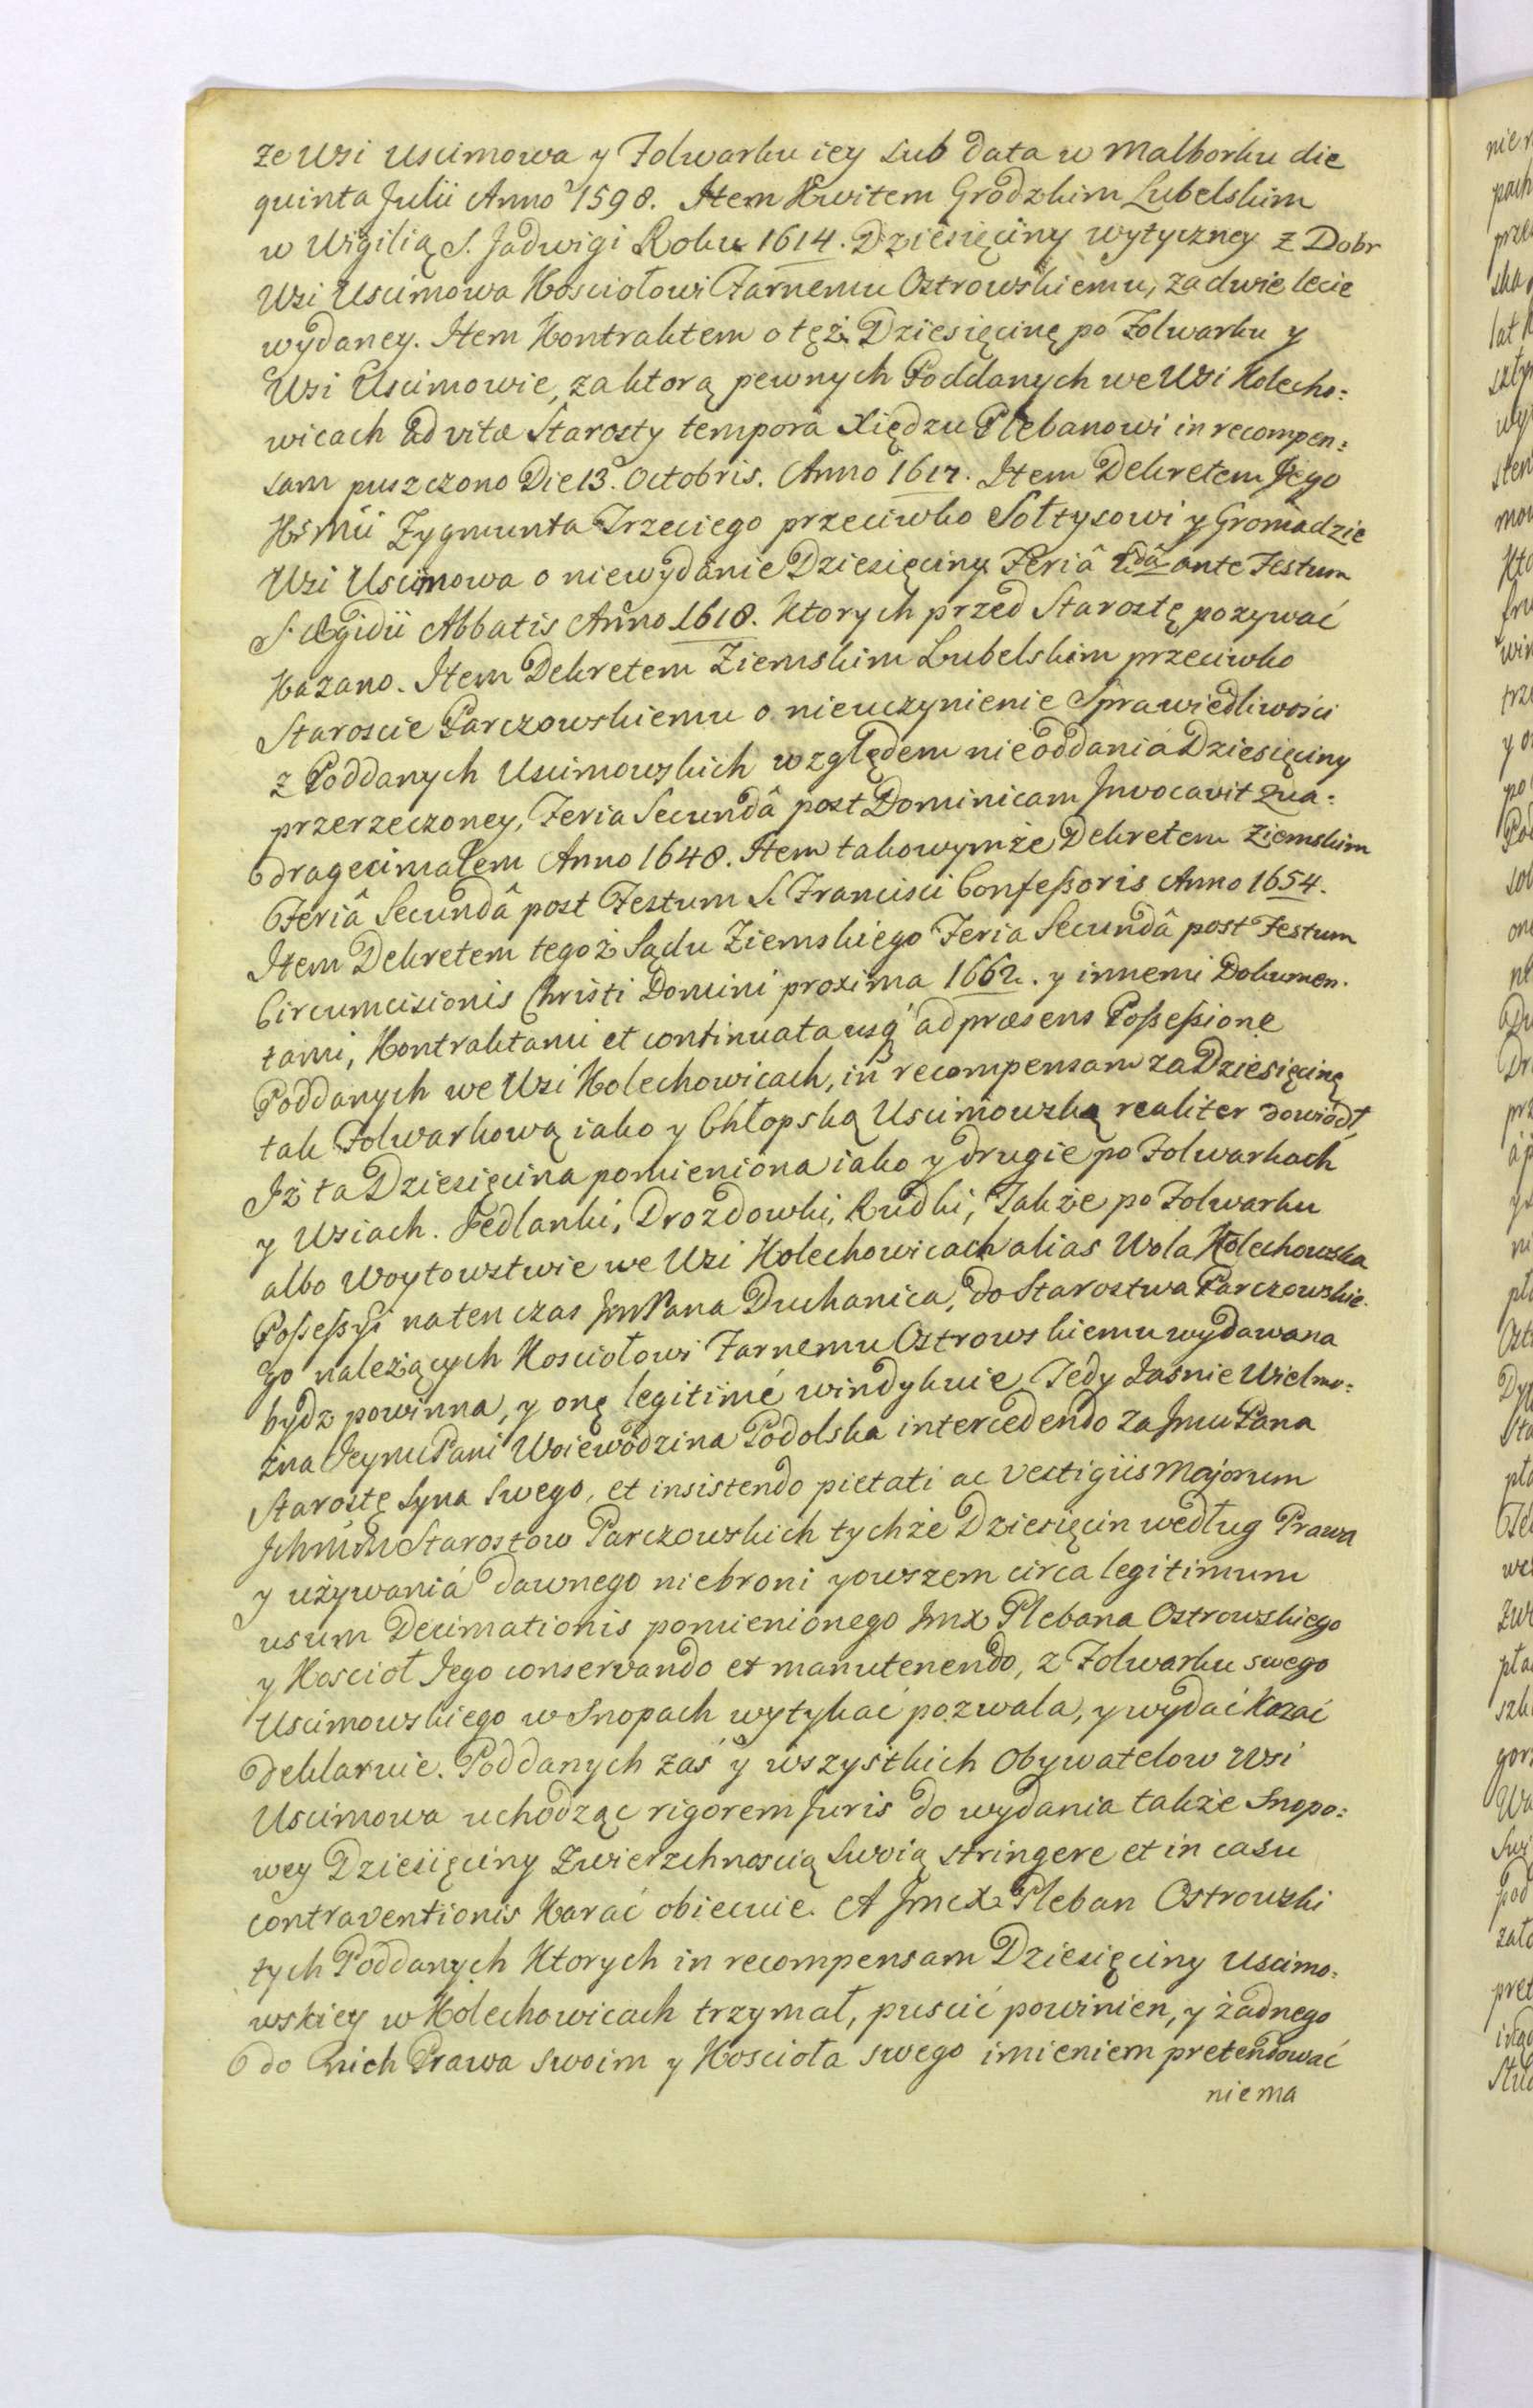 ze Wsi Uscimowa y Folwarku iey sub data w Malborku die
quinta Julii Anno 1598. Item Kwitem Grodzkim Lubelskim
w Wigilią S. Jadwigi Roku 1614. Dziesięciny wytyczney z Dobr
Wsi Uscimowa Kosciołowi Farnemu Ostrowskiemu, za dwie lecie
wydaney. Item Kontraktem o tęż Dziesięcinę po Folwarku y
Wsi Uscimowie, za ktorą pewnych Poddanych we Wsi Kolecho:
wicach ad vitæ Starosty tempora Xiędzu Plebanowi in recompen:
sam puszczono Die 13. Octobris. Anno 1617. Item Dekretem Jego
Kr Mći Zygmunta Trzeciego przeciwko Sołtysowi y Gromadzie
Wsi Uscimowa o niewydanie Dziesięciny Feriâ 2dâ ante Festum
S. Ægidii Abbatis Anno 1618. Ktorych przed Starostę pozywać
Kazano. Item Dekretem Ziemskim Lubelskim przeciwko
Staroscie Parczowskiemu o nieuczynienie Sprawiedliwości
z Poddanych Uscimowskich względem nieoddania Dziesięciny
przerzeczoney, Feria Secundâ post Dominicam Invocavit Qua:
dragecimalem Anno 1648. Item takowymże Dekretem Ziemskim
Feriâ Secundâ post Festum S. Francisci Confeßoris Anno 1654.
Item Dekretem tegoż Sądu Ziemskiego Feria Secundâ post Festum
Circumcisionis Christi Domini proxima 1662. y innemi Dokumen.
tami, Kontraktami et continuata usq' ad præsens Poßeßione
Poddanych we Wsi Kolechowicach, in recompensam za Dziesięcinę
tak Folwarkową iako y Chłopską Uscimowską realiter dowiodł,
Iż ta Dziesięcina pomieniona iako y drugie po Folwarkach
y Wsiach. Jedlanki, Drozdowki, Rudki, Także po Folwarku
albo Woytowstwie we Wsi Kolechowicach alias Wola Kolechowska
Poßeßyi na ten czas Jm Pana Duchanica, do Starostwa Parczowskie.
go należących Kosciołowi Farnemu Ostrowskiemu wydawana
bydz powinna, y onę legitimé windykuie. Tedy Jasnie Wielmo:
żna Jeymć Pani Woiewodzina Podolska intercedendo za Jmć Pana
Starostę Syna Swego, et insistendo pietati ac Vestigiis Majorum
Ichmć Starostow Parczowskich tychże Dziesięcin według Prawa
y używania dawnego niebroni y owszem circa legitimum
usum Decimationis pomienionego Jmx Plebana Ostrowskiego
y Kosciół Jego conservando et manutenendo, z Folwarku swego
Uscimowskiego w Snopach wytykać pozwala, y wydać Kazać
deklaruie. Poddanych zaś y wszystkich Obywatelow Wsi
Uscimowa uchodząc rigorem Juris do wydania także Snopo:
wey Dziesięciny Zwierzchnoscią Swoią stringere et in casu
contraventionis Karać obiecuie. A Jmcx Pleban Ostrowski
tych Poddanych Ktorych in recompensam Dziesięciny Uscimo:
wskiey w Kolechowicach trzymał, puscić powinien, y żadnego
do nich Prawa swoim y Kosciola swego imieniem pretendować
niema